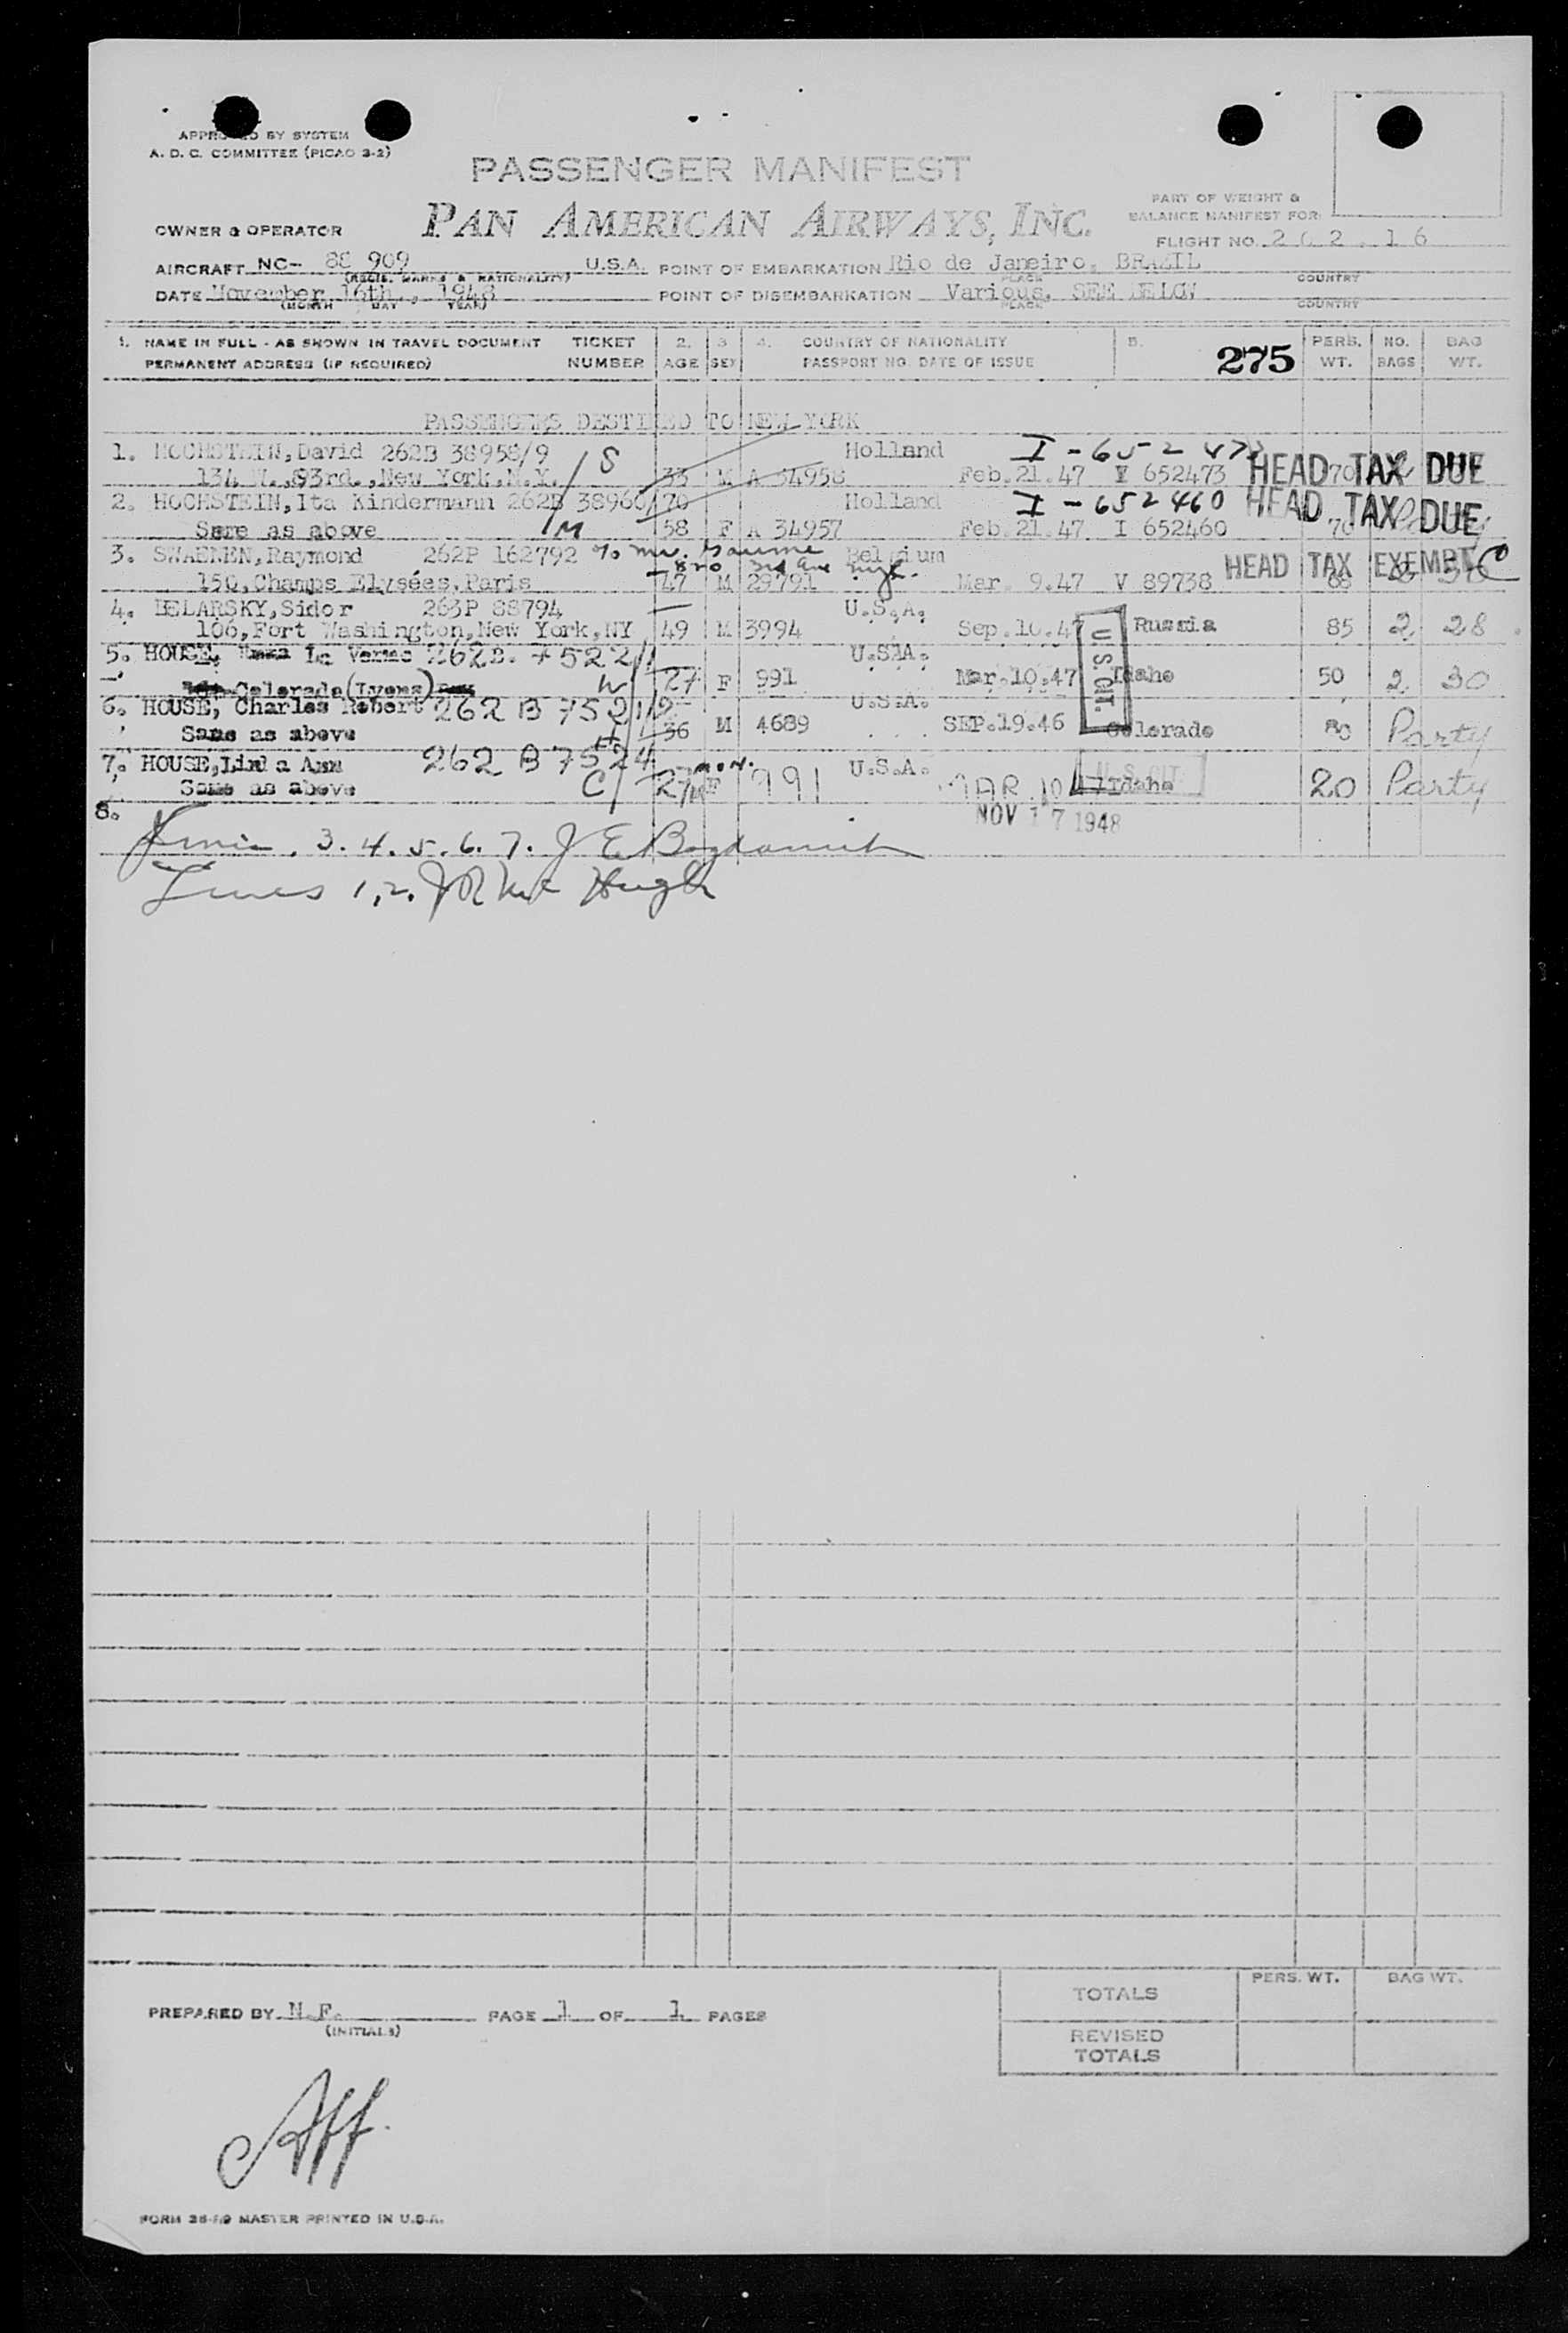 APPROVED BY SYSTEM
A. D. C. COMMITTEE (PICAO 3-2)
PASSENGER MANIFEST
PAN AMERICAN AIRWAYS, INC.
PART OF WEIGHT &
BALANCE MANIFEST FOR:
OWNER & OPERATOR
FLIGHT NO. 262 . 16
AIRCRAFT NC- 88 909 U.S.A. POINT OF EMBARKATION Rio de Janeiro, BRAZIL
(REGIS. MARKS & NATIONALITY) PLACE COUNTRY
DATE November 16th., 1948 POINT OF DISEMBARKATION Various, SEE BELOW
(MONTH DAY YEAR) PLACE COUNTRY
1. NAME IN FULL - AS SHOWN IN TRAVEL DOCUMENT TICKET 2. 3 4. COUNTRY OF NATIONALITY 5. 275 PERS. NO. BAG
PERMANENT ADDRESS (IF REQUIRED) NUMBER AGE SEX PASSPORT NO. DATE OF ISSUE WT. BAGS WT.
PASSENGERS DESTINED TO NEW YORK
1. HOCHSTEIN, David 262B 38958/9 / S Holland I-652473
134 W., 93rd., New York, N.Y. 33 M A 34958 Feb.21.47 652473 HEAD TAX DUE 70
2. HOCHSTEIN, Ita Kindermann 262B 38960/70 Holland I-652460
Same as above /M 58 F A 34957 Feb.21.47 I 652460 HEAD TAX DUE 70
3. SWAENEN, Raymond 262P 162792 % Mr. Belgium
820 3rd Ave nyc.
150, Champs Elysées, Paris 47 M 29791 Mar. 9.47 V 89738 HEAD TAX EXEMPT
4. BELARSKY, Sidor 263P 88794 U.S.A.
106, Fort Washington, New York, NY 49 M 3994 Sep.10.47 U.S.CIT. Russia 85 2 28
5. HOUSE, La Verne 262B. 7522/1 U.S.A.
Colorado (Lyons) W/ 27 F 991 Mar.10.47 Idaho 50 2 30
6. HOUSE, Charles Robert 262 B 7521/2 U.S.A.
Same as above 36 M 4689 SEP.19.46 Colorado 80 Party
7. HOUSE, Linda Ann 262 B 7524 U.S.A. U.S.CIT.
Same as above C/ 27 mon. F 991 MAR 10 47 Idaho 20 Party
8. NOV 17 1948
3. 4. 5. 6. 7. J E
Lines 1, 2.
PERS. WT. BAG WT.
TOTALS
PREPARED BY N.F. PAGE 1 OF 1 PAGES
(INITIALS)
REVISED
TOTALS
FORM MASTER PRINTED IN U.S.A.